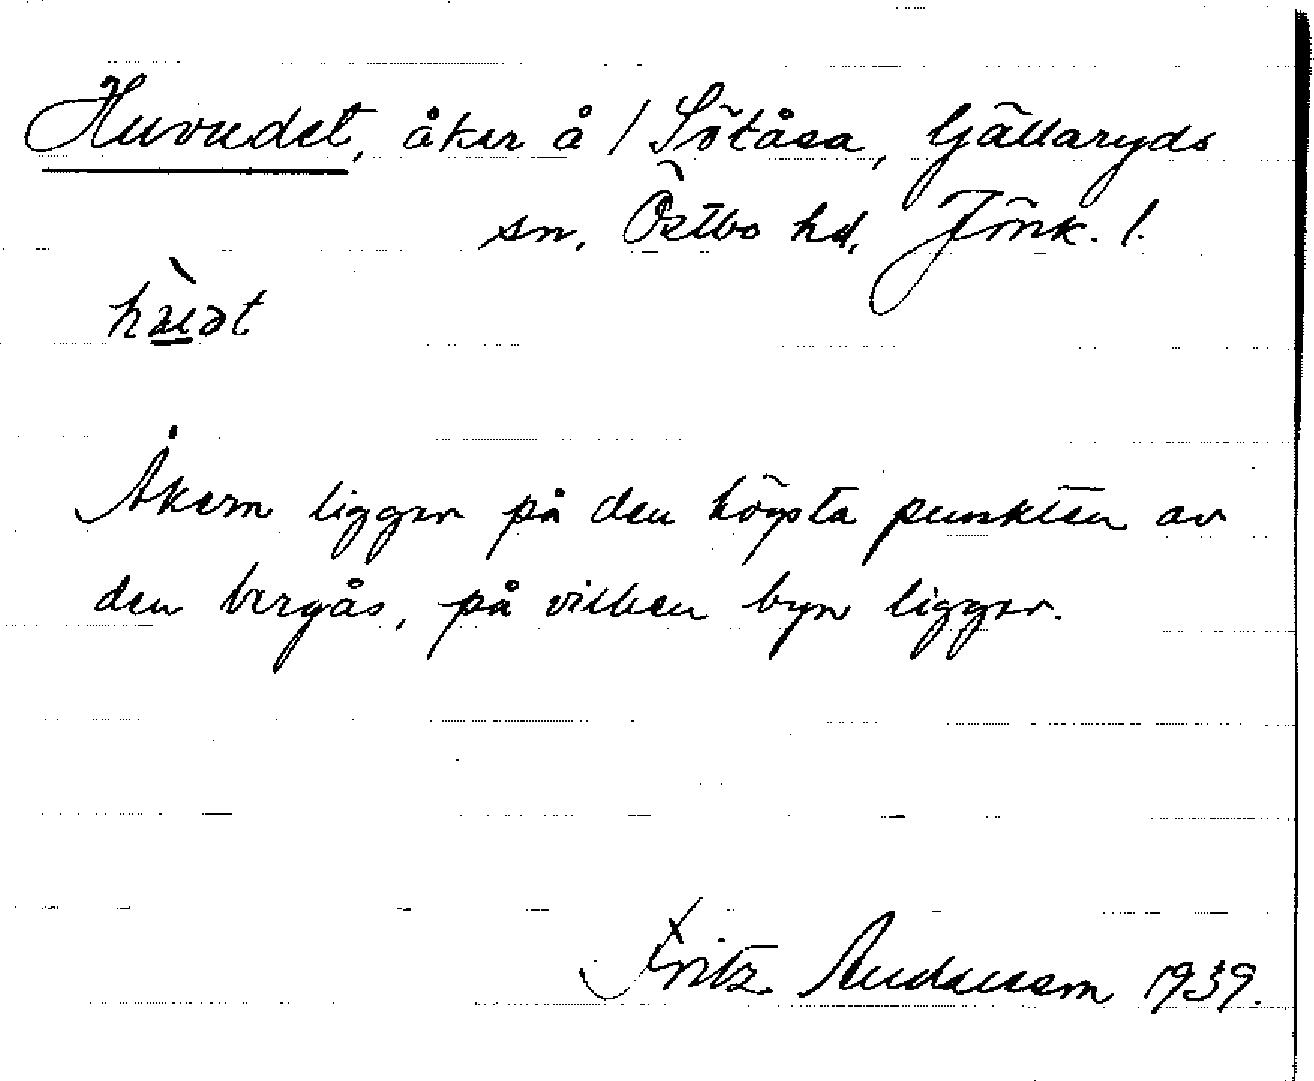 Huvudet, åker å / Sötåsa, Gällaryds
sn, Östbo hd, Jönk. l.
Åkern ligger på den högsta punkten av
den bergås, på vilken byn ligger.
Fritz Andersson 1939.